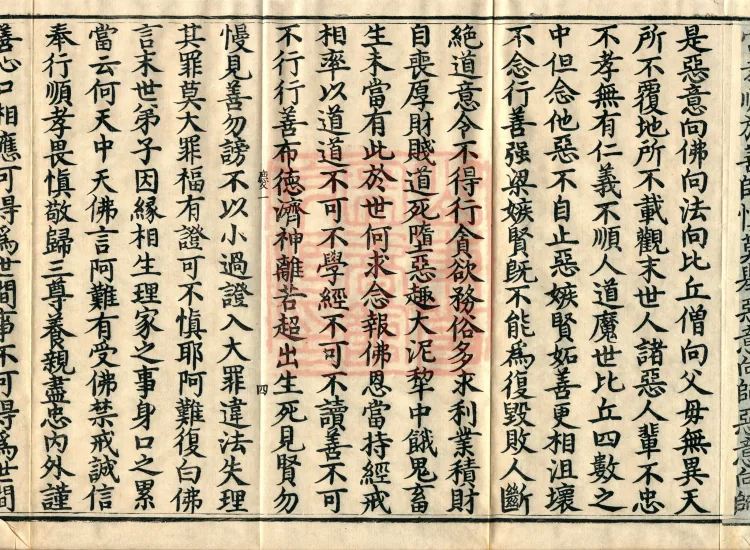 是惡意向佛向法向比丘僧向父母無異天
所不覆地所不載觀末世人諸惡人輩不忠
不孝無有仁義不順人道魔世比丘四數之
中但念他惡不自止惡嫉賢妬善更相沮壞
不念行善强梁嫉賢旣不能爲復毀敗人斷
絶道意令不得行貪欲務俗多求利業積財
自喪厚財賤道死墮惡趣大泥犁中餓鬼畜
生未當有此於世何求念報佛恩當持經戒
相率以道道不可不學經不可不讀善不可
不行行善布德濟神離苦超出生死見賢勿
慶一 四
慢見善勿謗不以小過證入大罪違法失理
其罪莫大罪福有證可不愼耶阿難復白佛
言末世弟子因緣相生理家之事身口之累
當云何天中天佛言阿難有受佛禁戒誠信
奉行順孝畏愼敬歸三尊養親盡忠內外謹
善心口相應可得爲世間事不可得爲世間